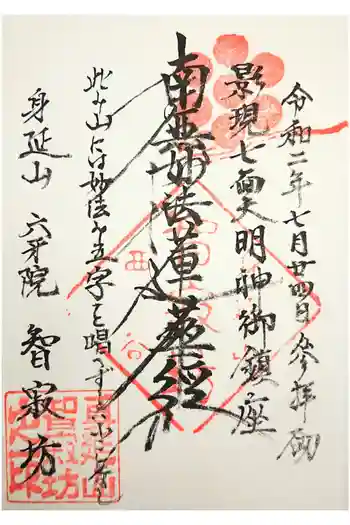 令和二年七月廿四日参拝
影現七面天明神御鎮座
南無妙法蓮華経
此み山には妙法の五字を唱へずと
身延山 六牙院 智寂坊